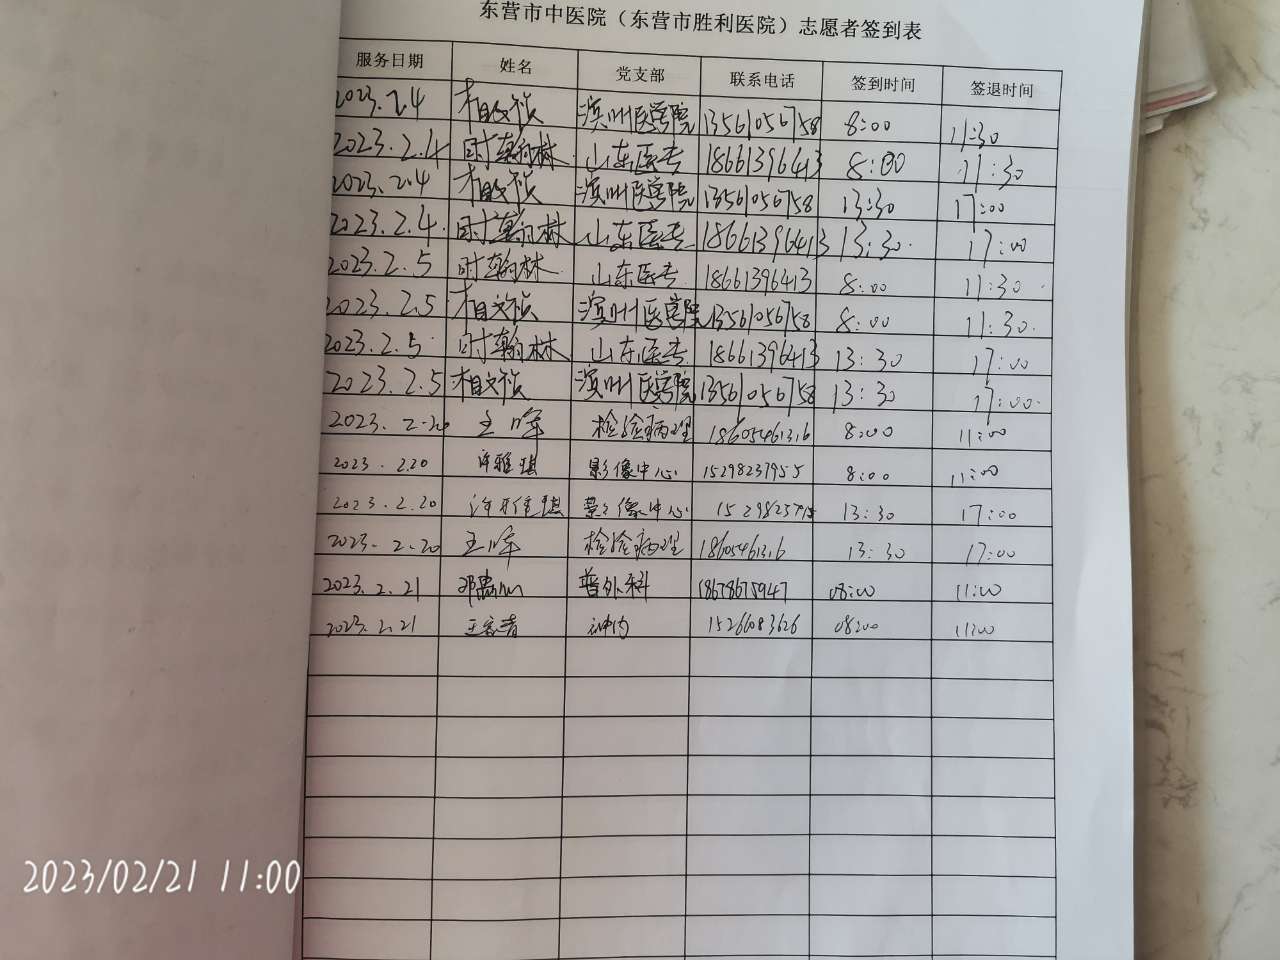 东营市中医院（东营市胜利医院）志愿者签到表
服务日期 姓名 党支部 联系电话 签到时间 签退时间
2023.2.4 相文祯 滨州医学院 13561056758 8:00 11:30
2023.2.4 时翰林 山东医专 18661396413 8:00 11:30
2023.2.4 相文祯 滨州医学院 13561056758 13:30 17:00
2023.2.4. 时翰林 山东医专 18661396413 13:30. 17:00
2023.2.5 时翰林 山东医专 18661396413 8:00 11:30
2023.2.5 相文祯 滨州医学院 13561056758 8:00 11:30
2023.2.5 时翰林 山东医专 18661396413 13:30 17:00
2023.2.5 相文祯 滨州医学院 13561056758 13:30 17:00
2023.2.20 王晖 检验病理 18605461316 8:00 11:00
2023.2.20 许雅琪 影像中心 15298237955 8:00 11:00
2023.2.20 许雅琪 影像中心 13:30 17:00
2023.2.20 王晖 检验病理 13:30 17:00
2023.2.21 普外科 18678675947 08:00 11:00
2023.2.21 神内 15266083626 08:00 11:00
2023/02/21 11:00